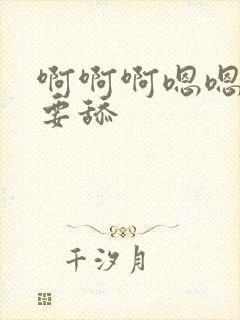 啊啊啊嗯嗯
要舔
千汐月